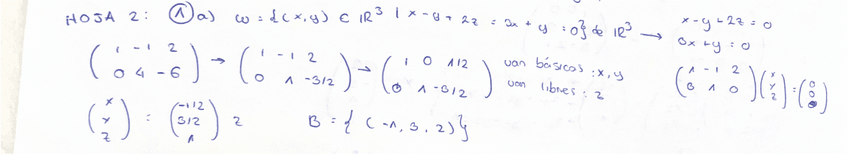 HOJA 2: ① a) W = {(x,y) ⊂ ℝ³ | x-y+2z = 3x+y = 0} de ℝ³ → x-y+2z=0
3x+y=0
(1 -1 2 / 0 4 -6) → (1 -1 2 / 0 1 -3/2) → (1 0 1/2 / 0 1 -3/2) van básicos: x,y
van libres: z
(1 -1 2 / 3 1 0) (x / y / z) = (0 / 0 / 0)
(x / y / z) = (-1/2 / 3/2 / 1) z B = {(-1, 3, 2)}